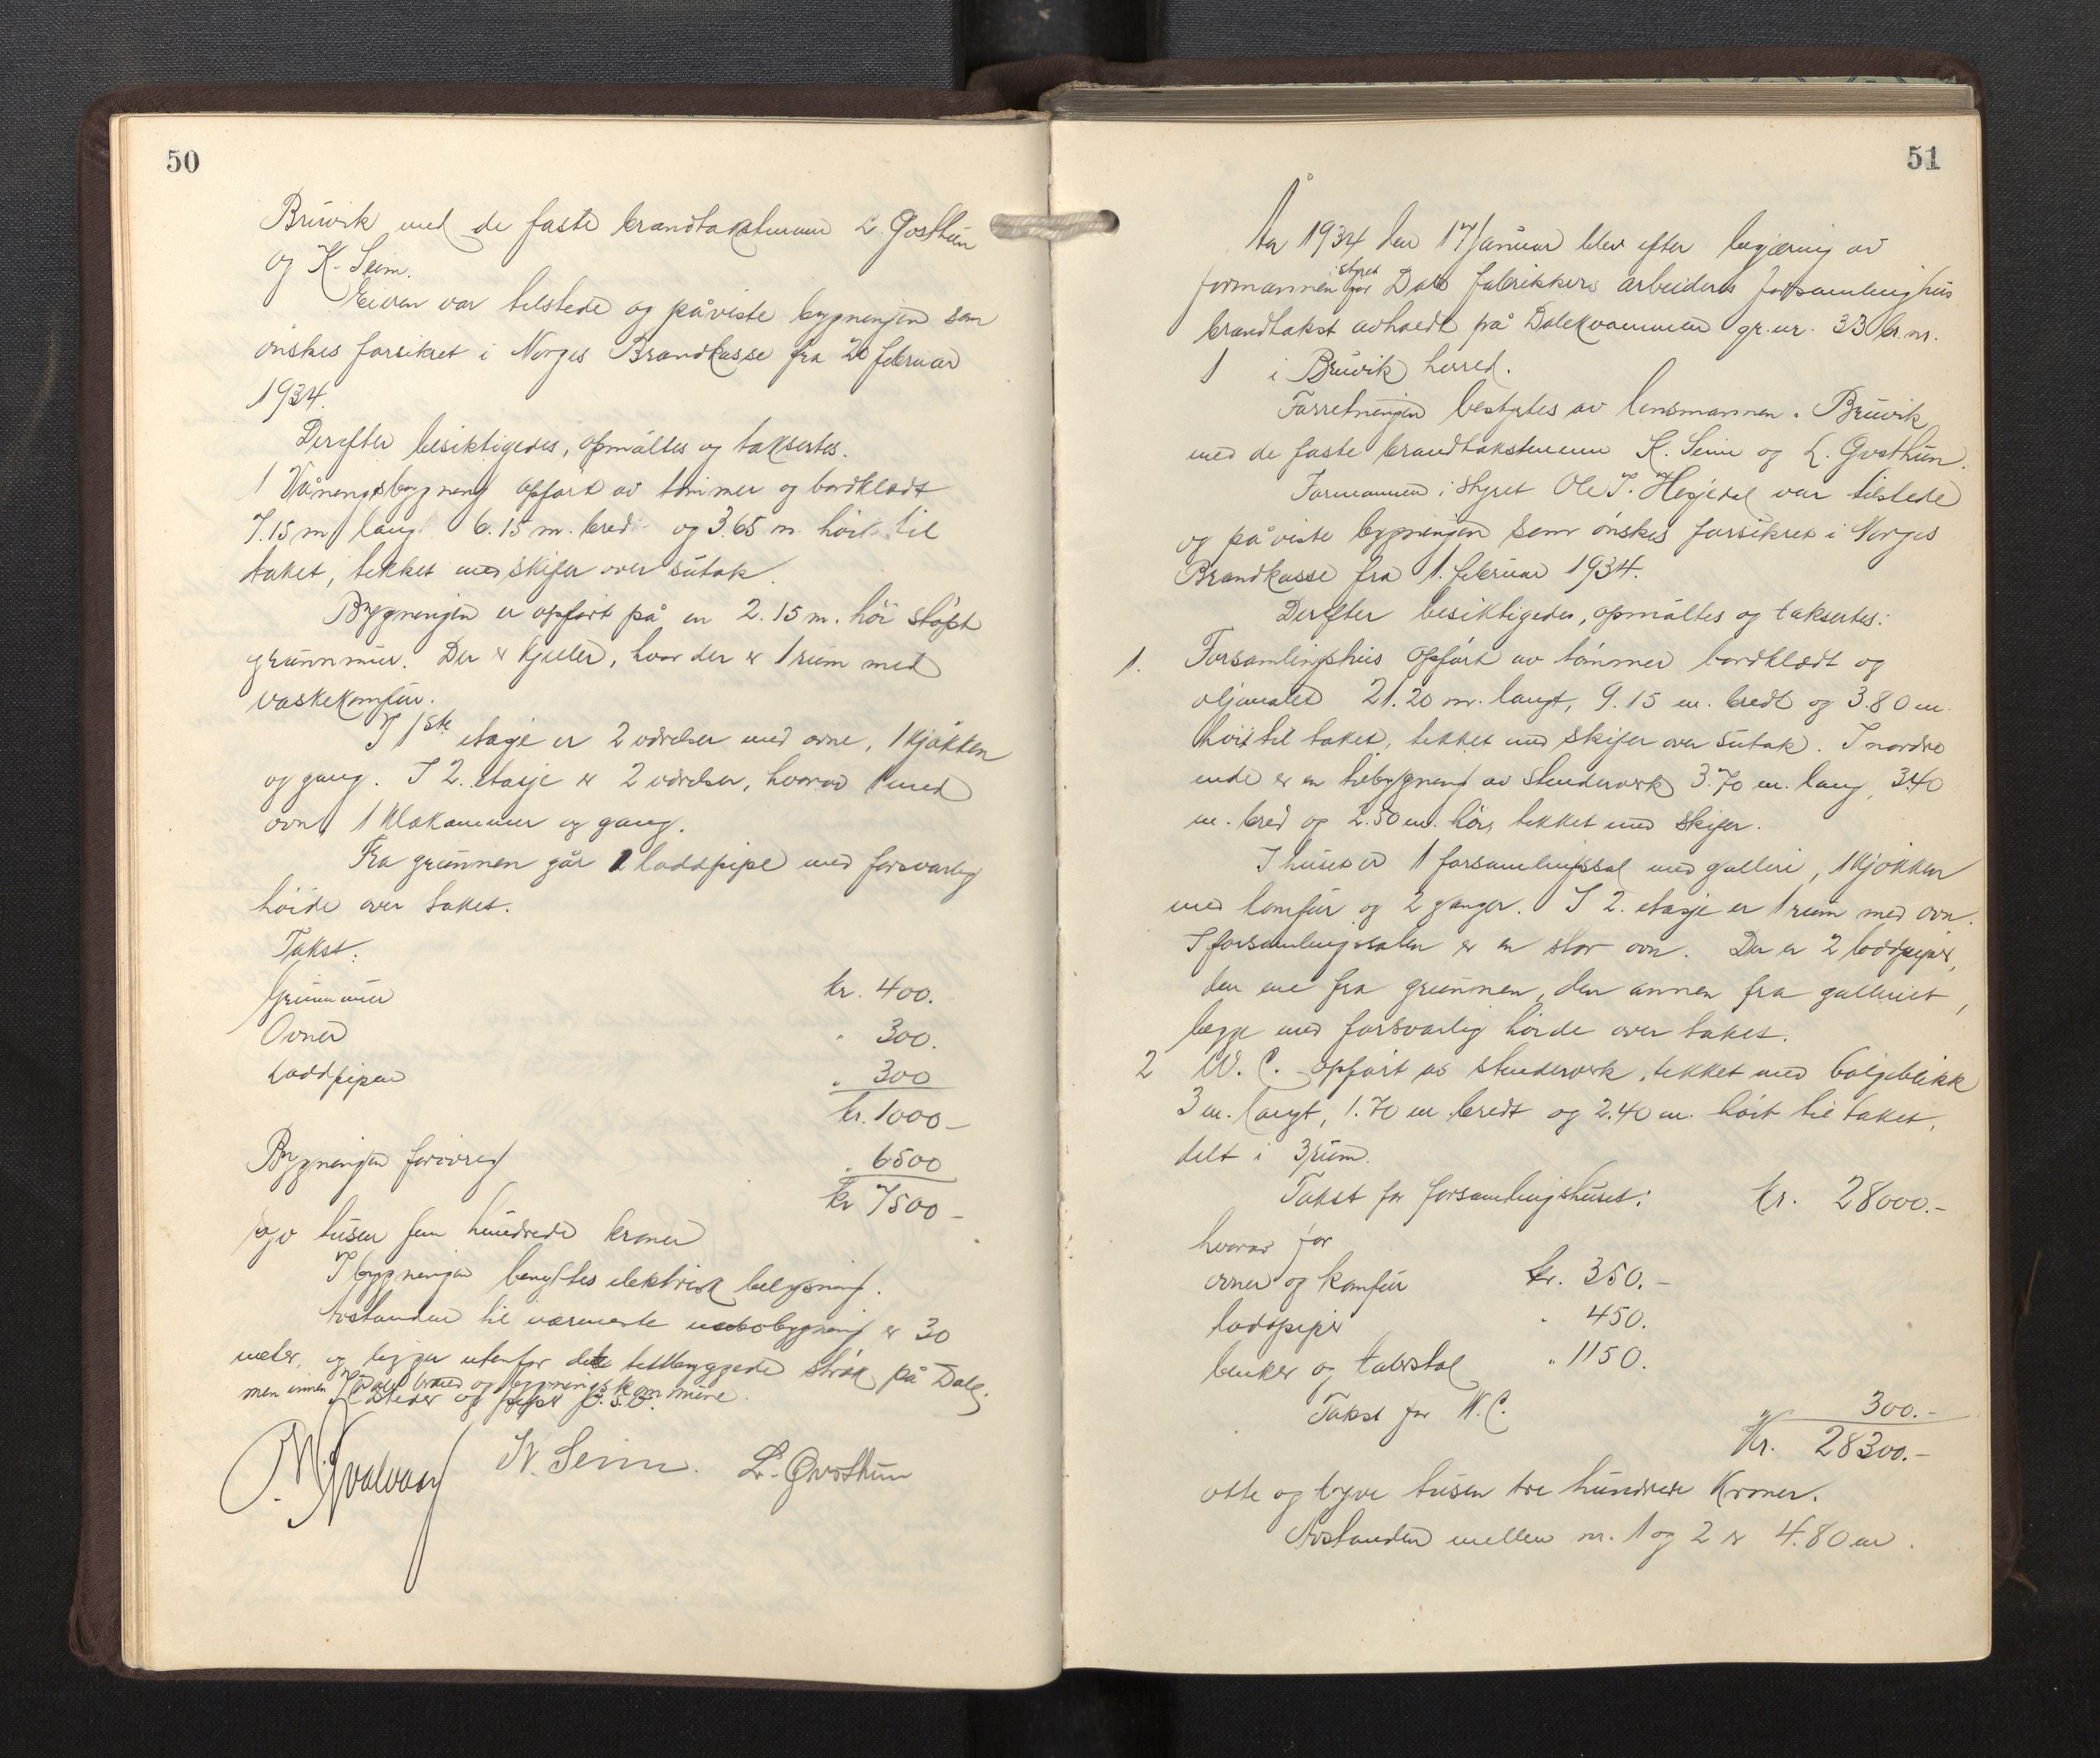 50
Bruvik med de faste brandtakstmenn L. Gosthun
og K. Seim.
Eieren var tilstede og påviste bygningen som
ønskes forsikret i Norges Brandkasse fra 20 februar
1934.
Derefter besiktigedes, opmåltes og taksertes.
1 Våningsbygning opført av tømmer og bordklædt
7.15 m lang 6.15 m. bred og 3.65 m. høi til
taket, tekket med skifer over sutak.
Bygningen er opført på en 2.15 m. høi støpt
grunnmur. Der er kjeller, hvor der er 1 rum med
vaskekomfur.
I 1ste etasje er 2 værelser med ovne, 1 kjøkken
og gang. I 2. etasje er 2 værelser, hvorav 1 med
ovn 1 klækammer og gang.
Fra grunnen går 1 loddpipe med forsvarlig
høide over taket.
Takst:
Grunnmur kr. 400.
Ovner " 300.
Loddpipen " 300
kr. 1000-
Bygningen forøvrig " 6500
kr 7500-
syv tusen fem hundrede kroner
I bygningen benyttes elektrisk belysning.
Avstanden til nærmeste nabobygning er 30
meter, og ligger utenfor det tettbyggede strøk på Dale,
men innen Dale brand og bygningskommune.
K. Seim. L. Gosthun
51
År 1934 den 17 januar blev efter begjæring av
formannen i styret for Dale fabrikkers arbeideres forsamlingshus
brandtakst avholdt på Dalekvammen gr.nr. 33 br.nr.
1 i Bruvik herred.
Forretningen bestyrtes av lensmannen i Bruvik
med de faste brandtakstmenn K. Seim og L. Gosthun.
Formannen i styret Ole J. Hesjedal var tilstede
og påviste bygningen som ønskes forsikret i Norges
Brandkasse fra 1. februar 1934.
Derefter besiktigedes, opmåltes og taksertes:
1. Forsamlingshus opført av tømmer bordklædt og
oljemalet 21.20 m. langt, 9.15 m. bredt og 3.80 m.
høit til taket, tekket med skifer over sutak. I nordre
ende er en tilbygning av stenderverk 3.70 m. lang, 3.40
m. bred og 2.50 m. høi, tekket med skifer.
I huset er 1 forsamlingssal med galleri, 1 kjøkken
med komfur og 2 ganger. I 2. etasje er 1 rum med ovn.
I forsamlingssalen er en stor ovn. Der er 2 loddpiper,
den ene fra grunnen, den annen fra galleriet,
begge med forsvarlig høide over taket.
2 W. C. opført av stenderverk, tekket med bølgeblikk
3 m. langt, 1.70 m bredt og 2.40 m. høit til taket,
delt i 3 rum.
Takst for forsamlingshuset: kr. 28000.-
hvorav for
ovner og komfur kr. 350.-
loddpiper " 450.
benker og talerstol " 1150.
Takst for W.C. " 300.-
Kr. 28300.-
otte og tyve tusen tre hundrede kroner.
Avstanden mellem nr. 1 og 2 er 4.80 m.